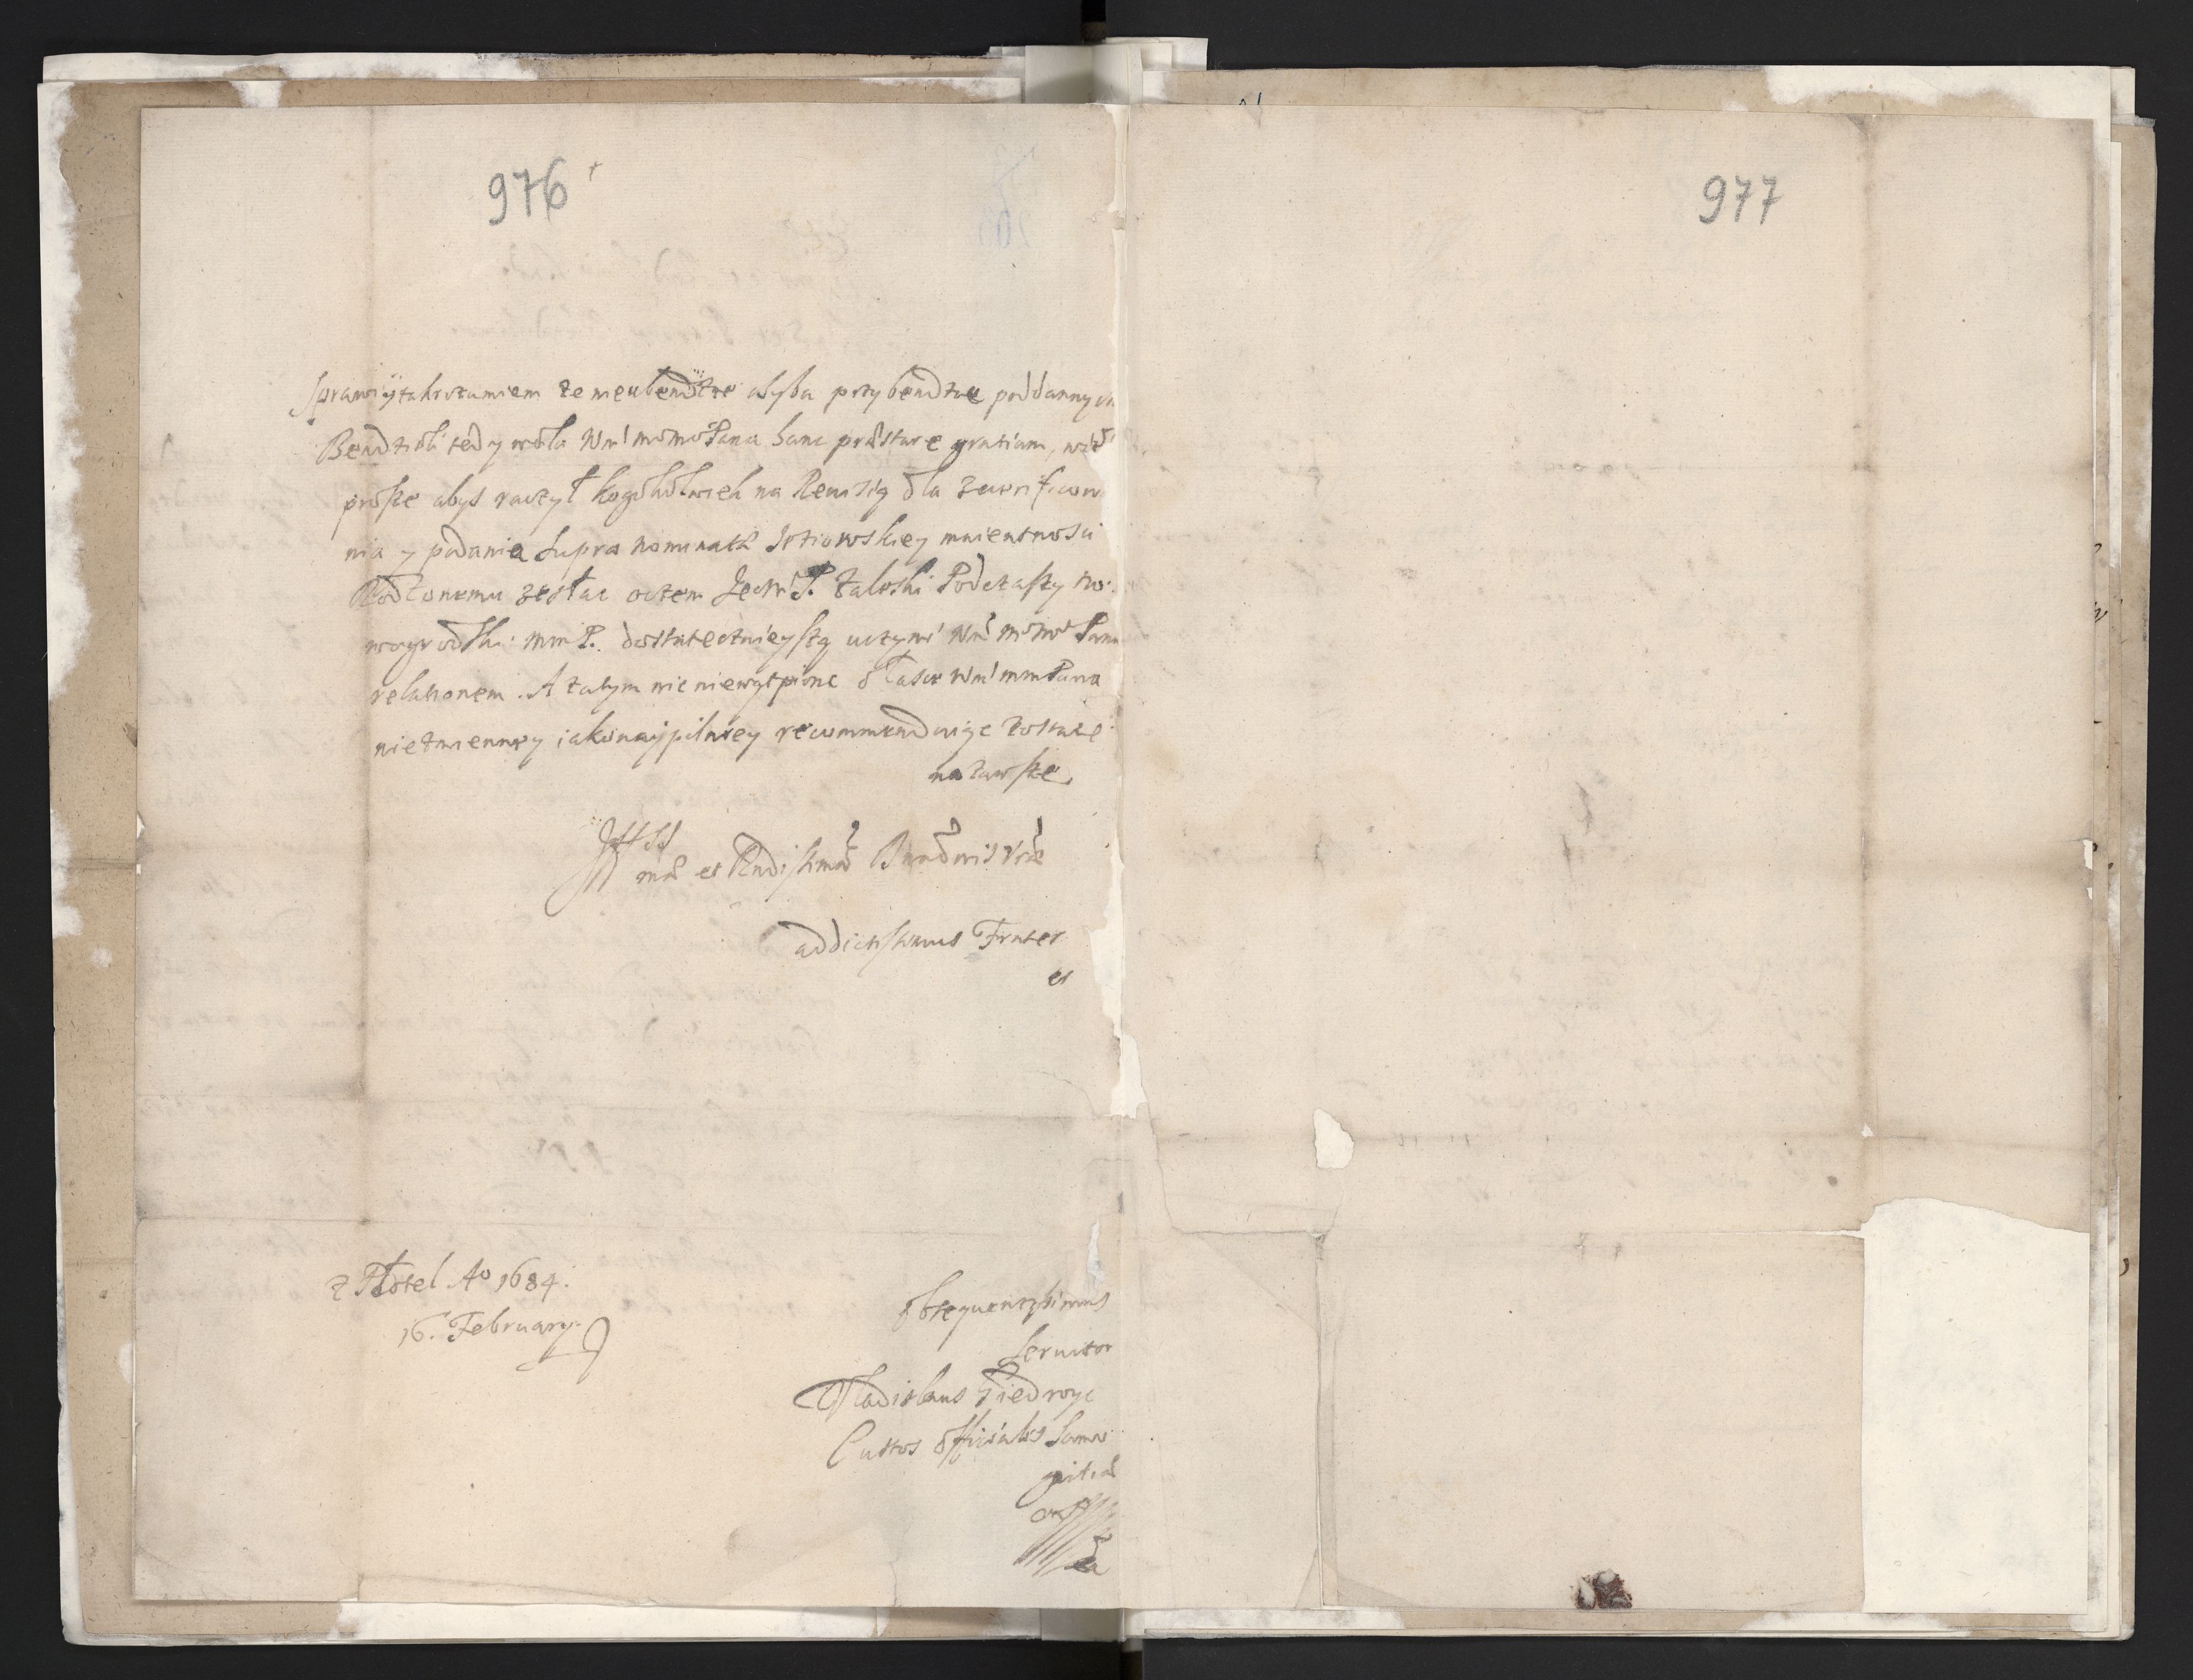 976
977
Sprawiy tak rozumiem ze nieubendzie chyba przybendzie poddannych
Bendzieli tedy wola Wm mo mo Pana hanc præstare gratiam,
prosze abys raczył kogokolwiek na Rewizią dla zweryfikowa
nia y podania supra nominatæ maientnosci
zesłac oczem Jeo M P. Zaleski Podczaszy No
wogrodzki mm P. dostatecznieyszą uczyni Wm mo mo Panu
relationem. A zatym nic niewątpiąc o łasce Wm mm Pana
niezmienney iakonaypilniey recommenduiąc zostaię
nazawsze
Illss
mæ et Rndissimæ Dnaonis Vræ
addictissimus Frater
et
z Płotel Ao 1684.
16. February
obsequentissimus
servitor
Vladislaus Giedroyc
Custos Officialis Samo
gitiæ